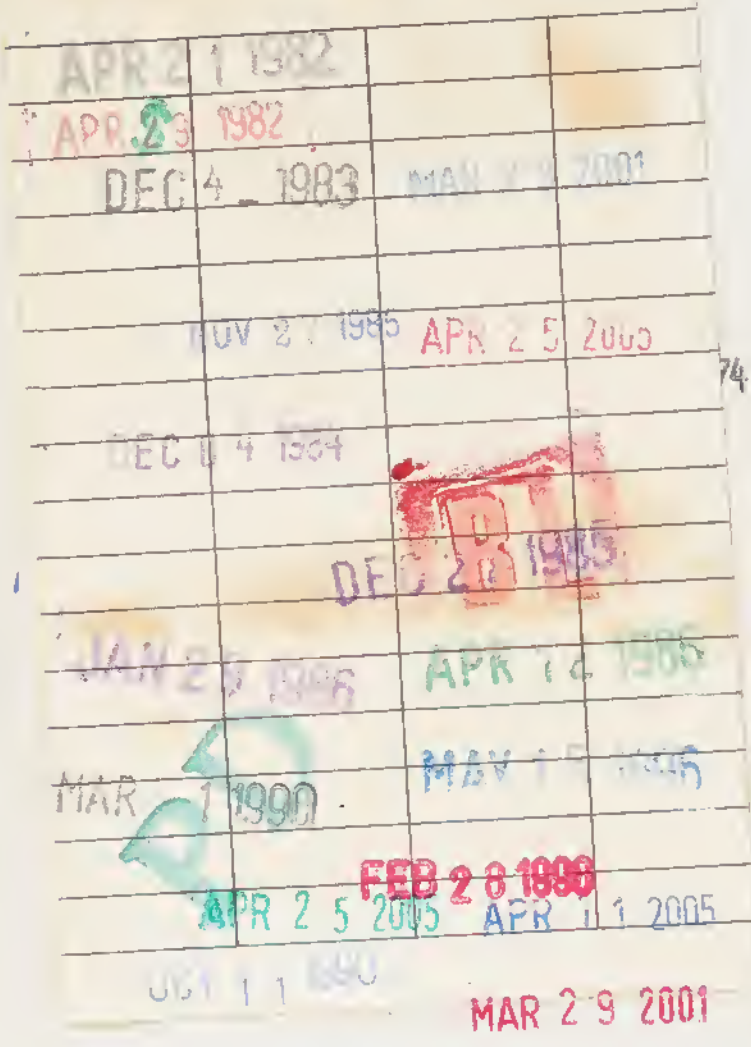 APR 21 1982
APR 23 1982
DEC 4 - 1983
MAR 2001
NOV 27 1985
APR 25 2005
74
DEC 04 1984
DEC 27 1985
JAN 25
APR 12 1986
MAR 1 1990
MAY 15
FEB 28 1990
APR 25 2005
APR 11 2005
OCT 11 1990
MAR 29 2001